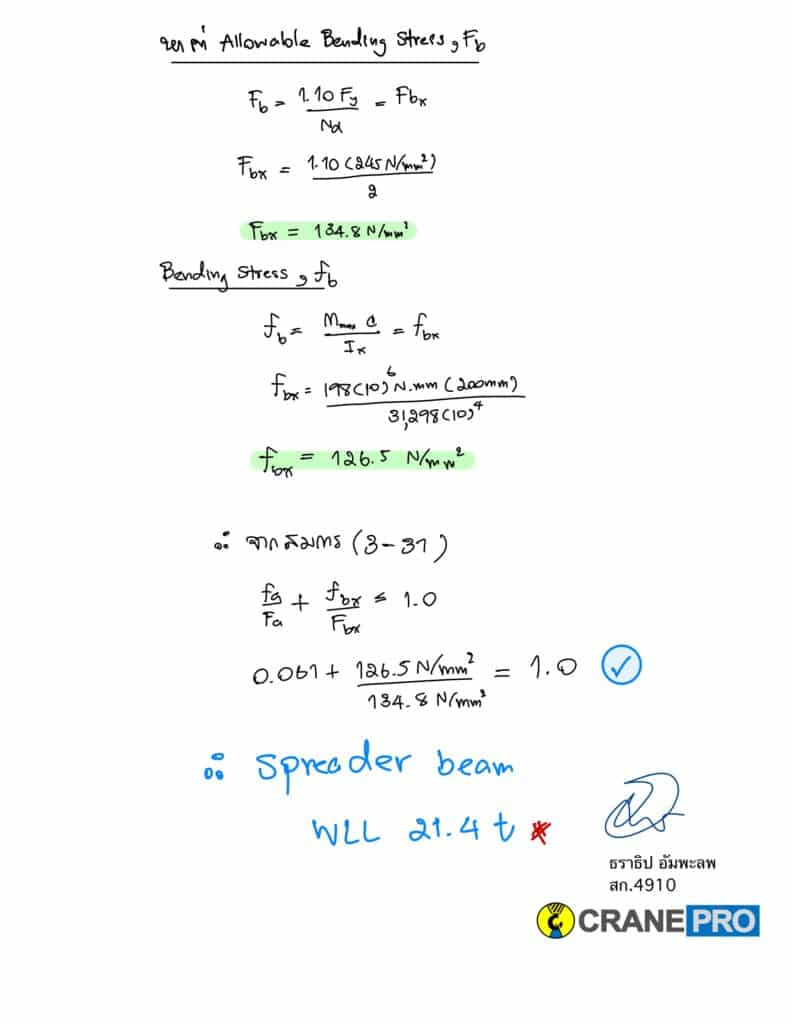 หาค่า Allowable Bending Stress, Fb
Fb = 1.10 Fy / Nd = Fbx
Fbx = 1.10 (245 N/mm²) / 2
Fbx = 134.8 N/mm²
Bending Stress, fb
fb = Mmax c / Ix = fbx
fbx = 198(10)⁶ N.mm (200mm) / 31,298(10)⁴
fbx = 126.5 N/mm²
∴ จากสมการ (3-31)
fa/Fa + fbx/Fbx ≤ 1.0
0.061 + 126.5 N/mm² / 134.8 N/mm² = 1.0
∴ Spreader beam
WLL 21.4 t *
ธราธิป อัมพะลพ
สก.4910
CRANE PRO